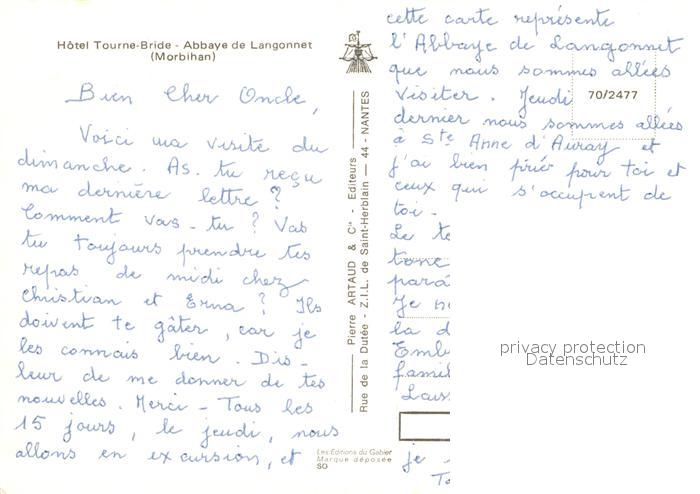 Hôtel Tourne-Bride - Abbaye de Langonnet
(Morbihan)
Bien Cher Oncle,
Voici ma visite du
dimanche. As-tu reçu
ma dernière lettre ?
Comment vas-tu ? Vas
tu toujours prendre tes
repas de midi chez
Christian et Erna ? Ils
doivent te gâter, car je
les connais bien. Dis-
leur de me donner de tes
nouvelles. Merci - Tous les
15 jours, le jeudi, nous
allons en excursion, et
Les Editions du Gabier
Marque déposée
SO
Pierre ARTAUD & Cie - Editeurs
Rue de la Dutée - Z.I.L. de Saint-Herblain - 44 - NANTES
cette carte représente
l'Abbaye de Langonnet
que nous sommes allées
visiter. Jeudi
70/2477
dernier nous sommes allées
à Ste Anne d'Auray et
j'ai bien prié pour toi et
ceux qui s'occupent de
toi.
Le te
tone
para
Je n
la d
Emb
famil
Lais
je
To
privacy protection
Datenschutz